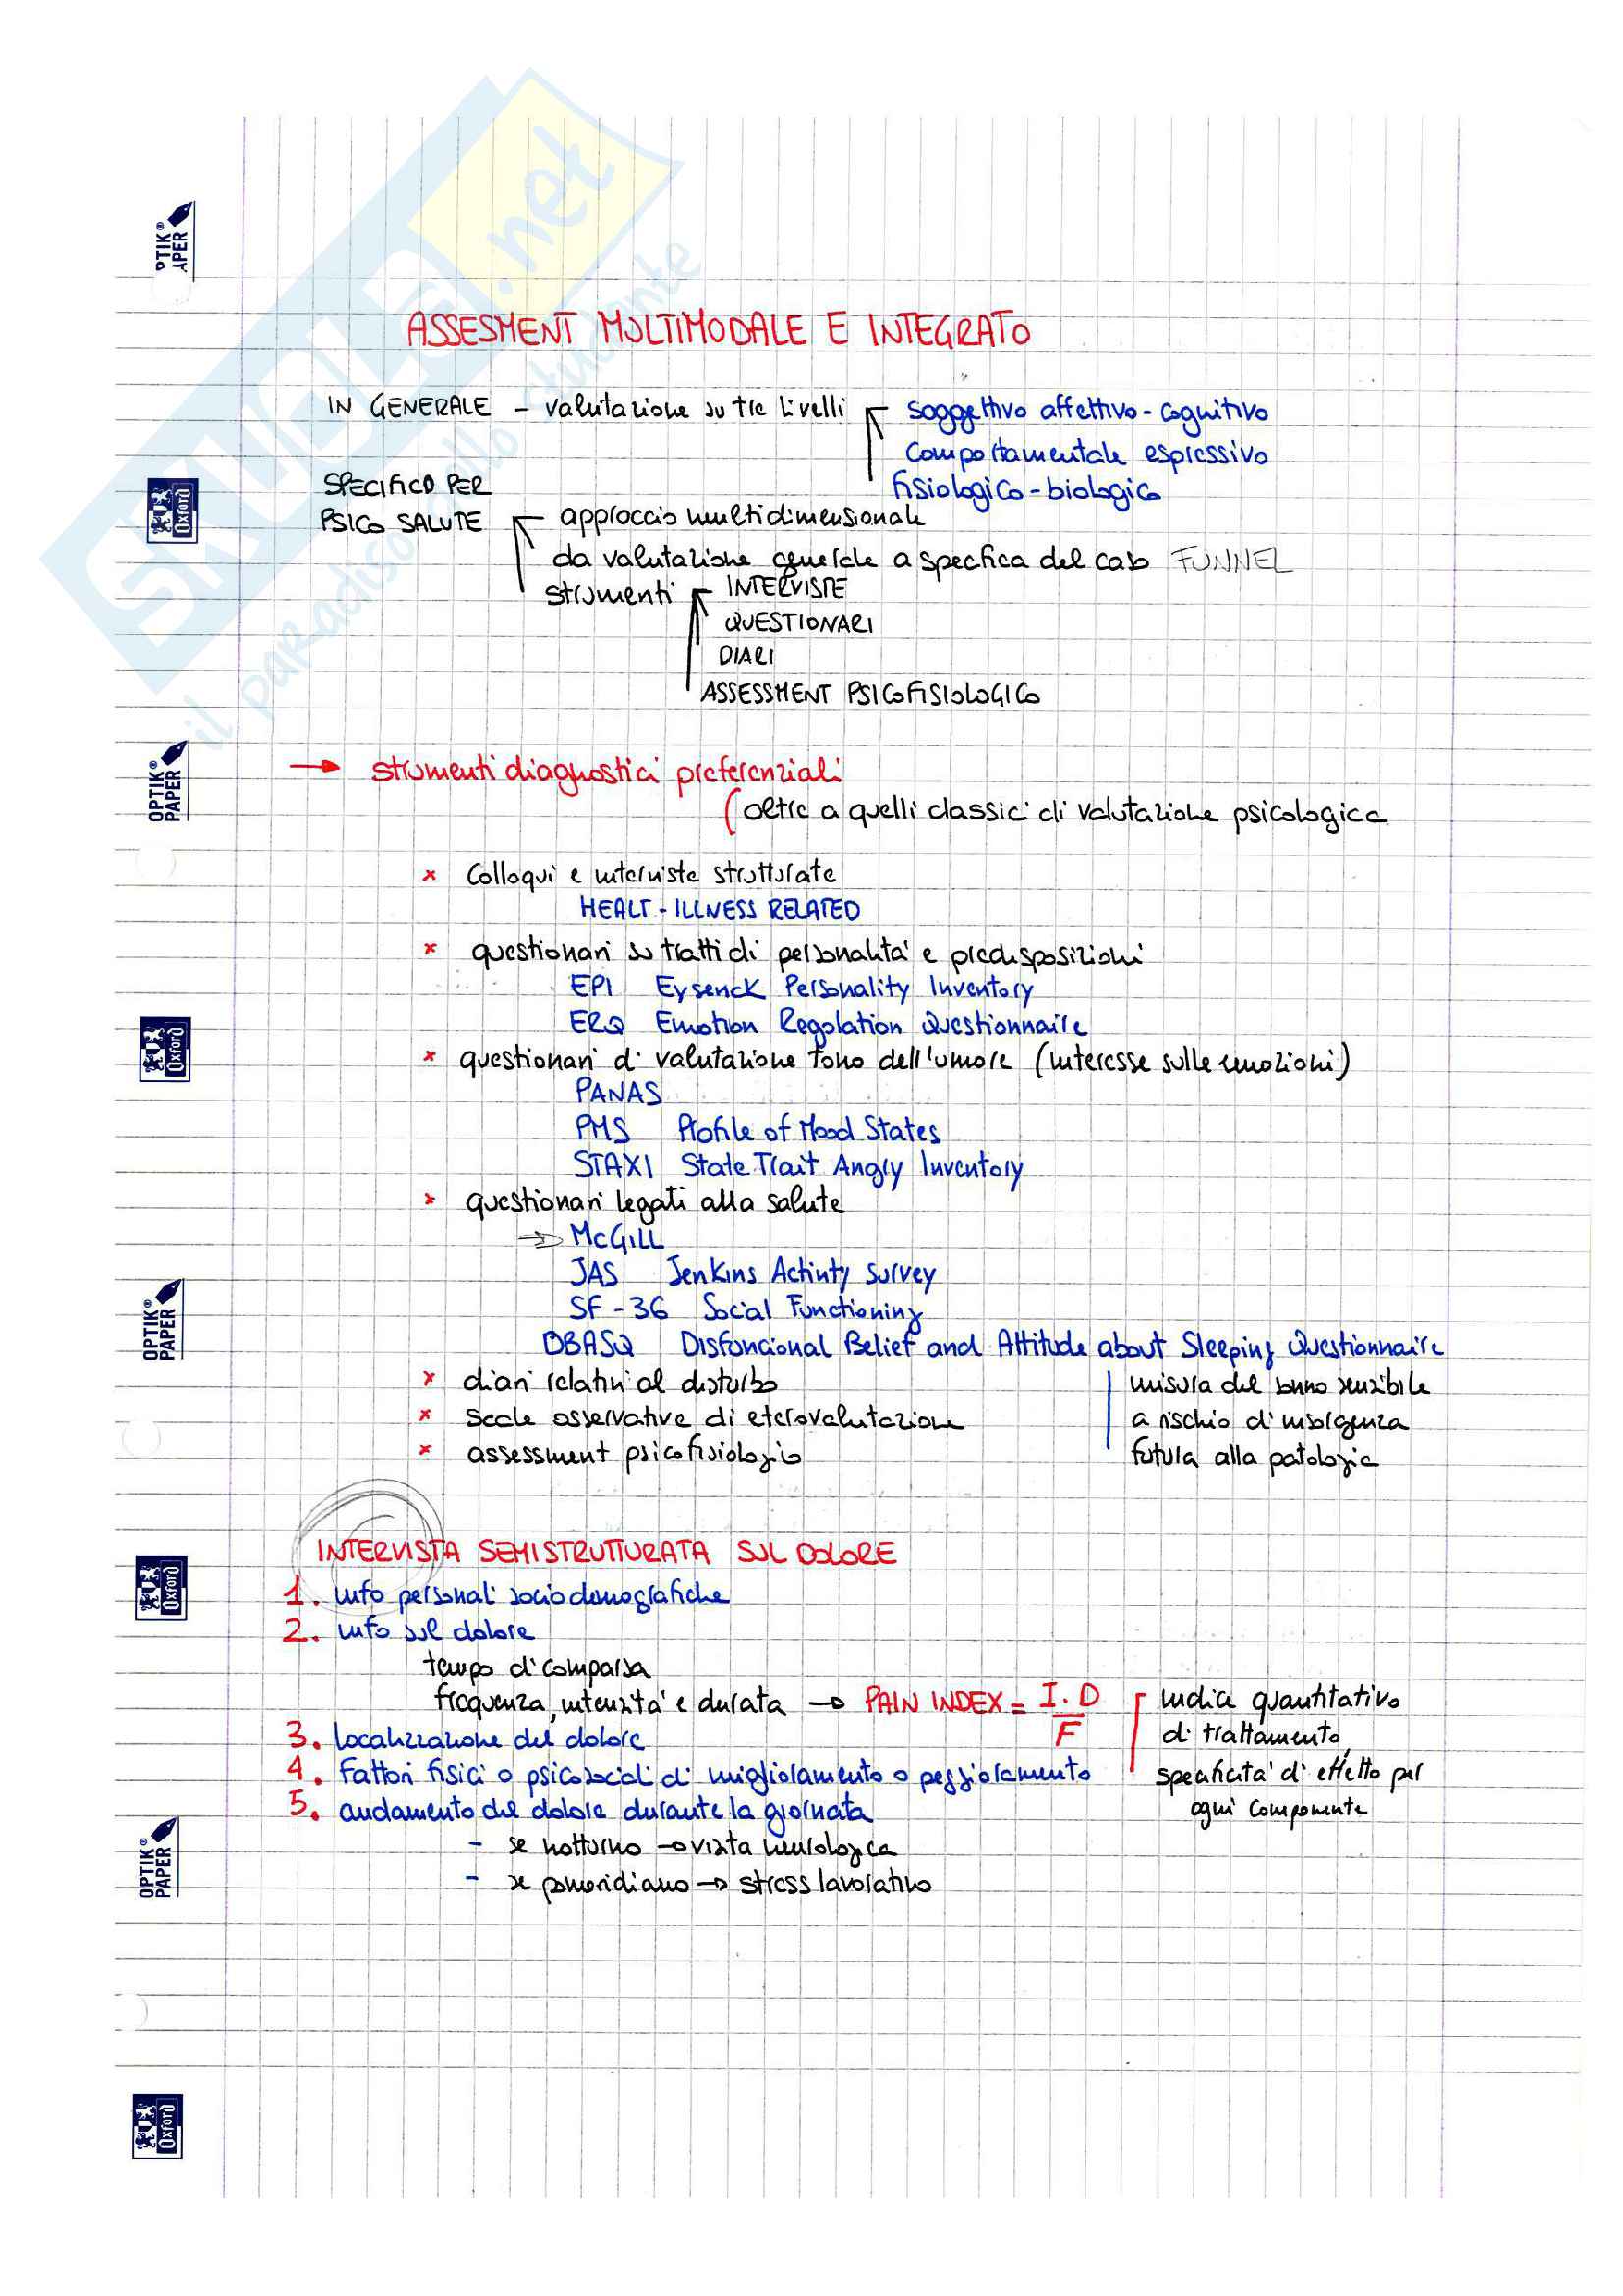 SKUOLA.net
il paradiso dello studente
OPTIK® PAPER
ASSESMENT MULTIMODALE E INTEGRATO
IN GENERALE - valutazione su tre livelli soggettivo affettivo - cognitivo
comportamentale espressivo
SPECIFICO PER fisiologico - biologico
PSICO SALUTE approccio multidimensionale
Oxford
da valutazione generale a specifica del caso FUNNEL
strumenti INTERVISTE
QUESTIONARI
DIARI
ASSESSMENT PSICOFISIOLOGICO
→ strumenti diagnostici preferenziali
OPTIK® PAPER
(oltre a quelli classici di valutazione psicologica
x Colloqui e interviste strutturate
HEALT - ILLNESS RELATED
x questionari su tratti di personalità e predisposizioni
EPI Eysenck Personality Inventory
ERQ Emotion Regolation Questionnaire
Oxford
x questionari di valutazione tono dell'umore (interesse sulle emozioni)
PANAS
PMS Profile of Mood States
STAXI State Trait Angry Inventory
x questionari legati alla salute
→ McGILL
JAS Jenkins Activity Survey
SF - 36 Social Functioning
OPTIK® PAPER
DBASQ Disfuncional Belief and Attitude about Sleeping Questionnaire
x diari relativi al disturbo misura del sonno sensibile
x Scale osservative di eterovalutazione a rischio di insorgenza
x assessment psicofisiologio futura alla patologia
INTERVISTA SEMISTRUTTURATA SUL DOLORE
Oxford
1. info personali sociodemografiche
2. info sul dolore
tempo di comparsa
frequenza, intensità e durata → PAIN INDEX = I . D / F indice quantitativo
3. localizzazione del dolore di trattamento,
4. Fattori fisici o psicosociali di miglioramento o peggioramento specificità di effetto per
5. andamento del dolore durante la giornata ogni componente
OPTIK® PAPER
- se notturno → visita neurologica
- se pomeridiano → stress lavorativo
Oxford